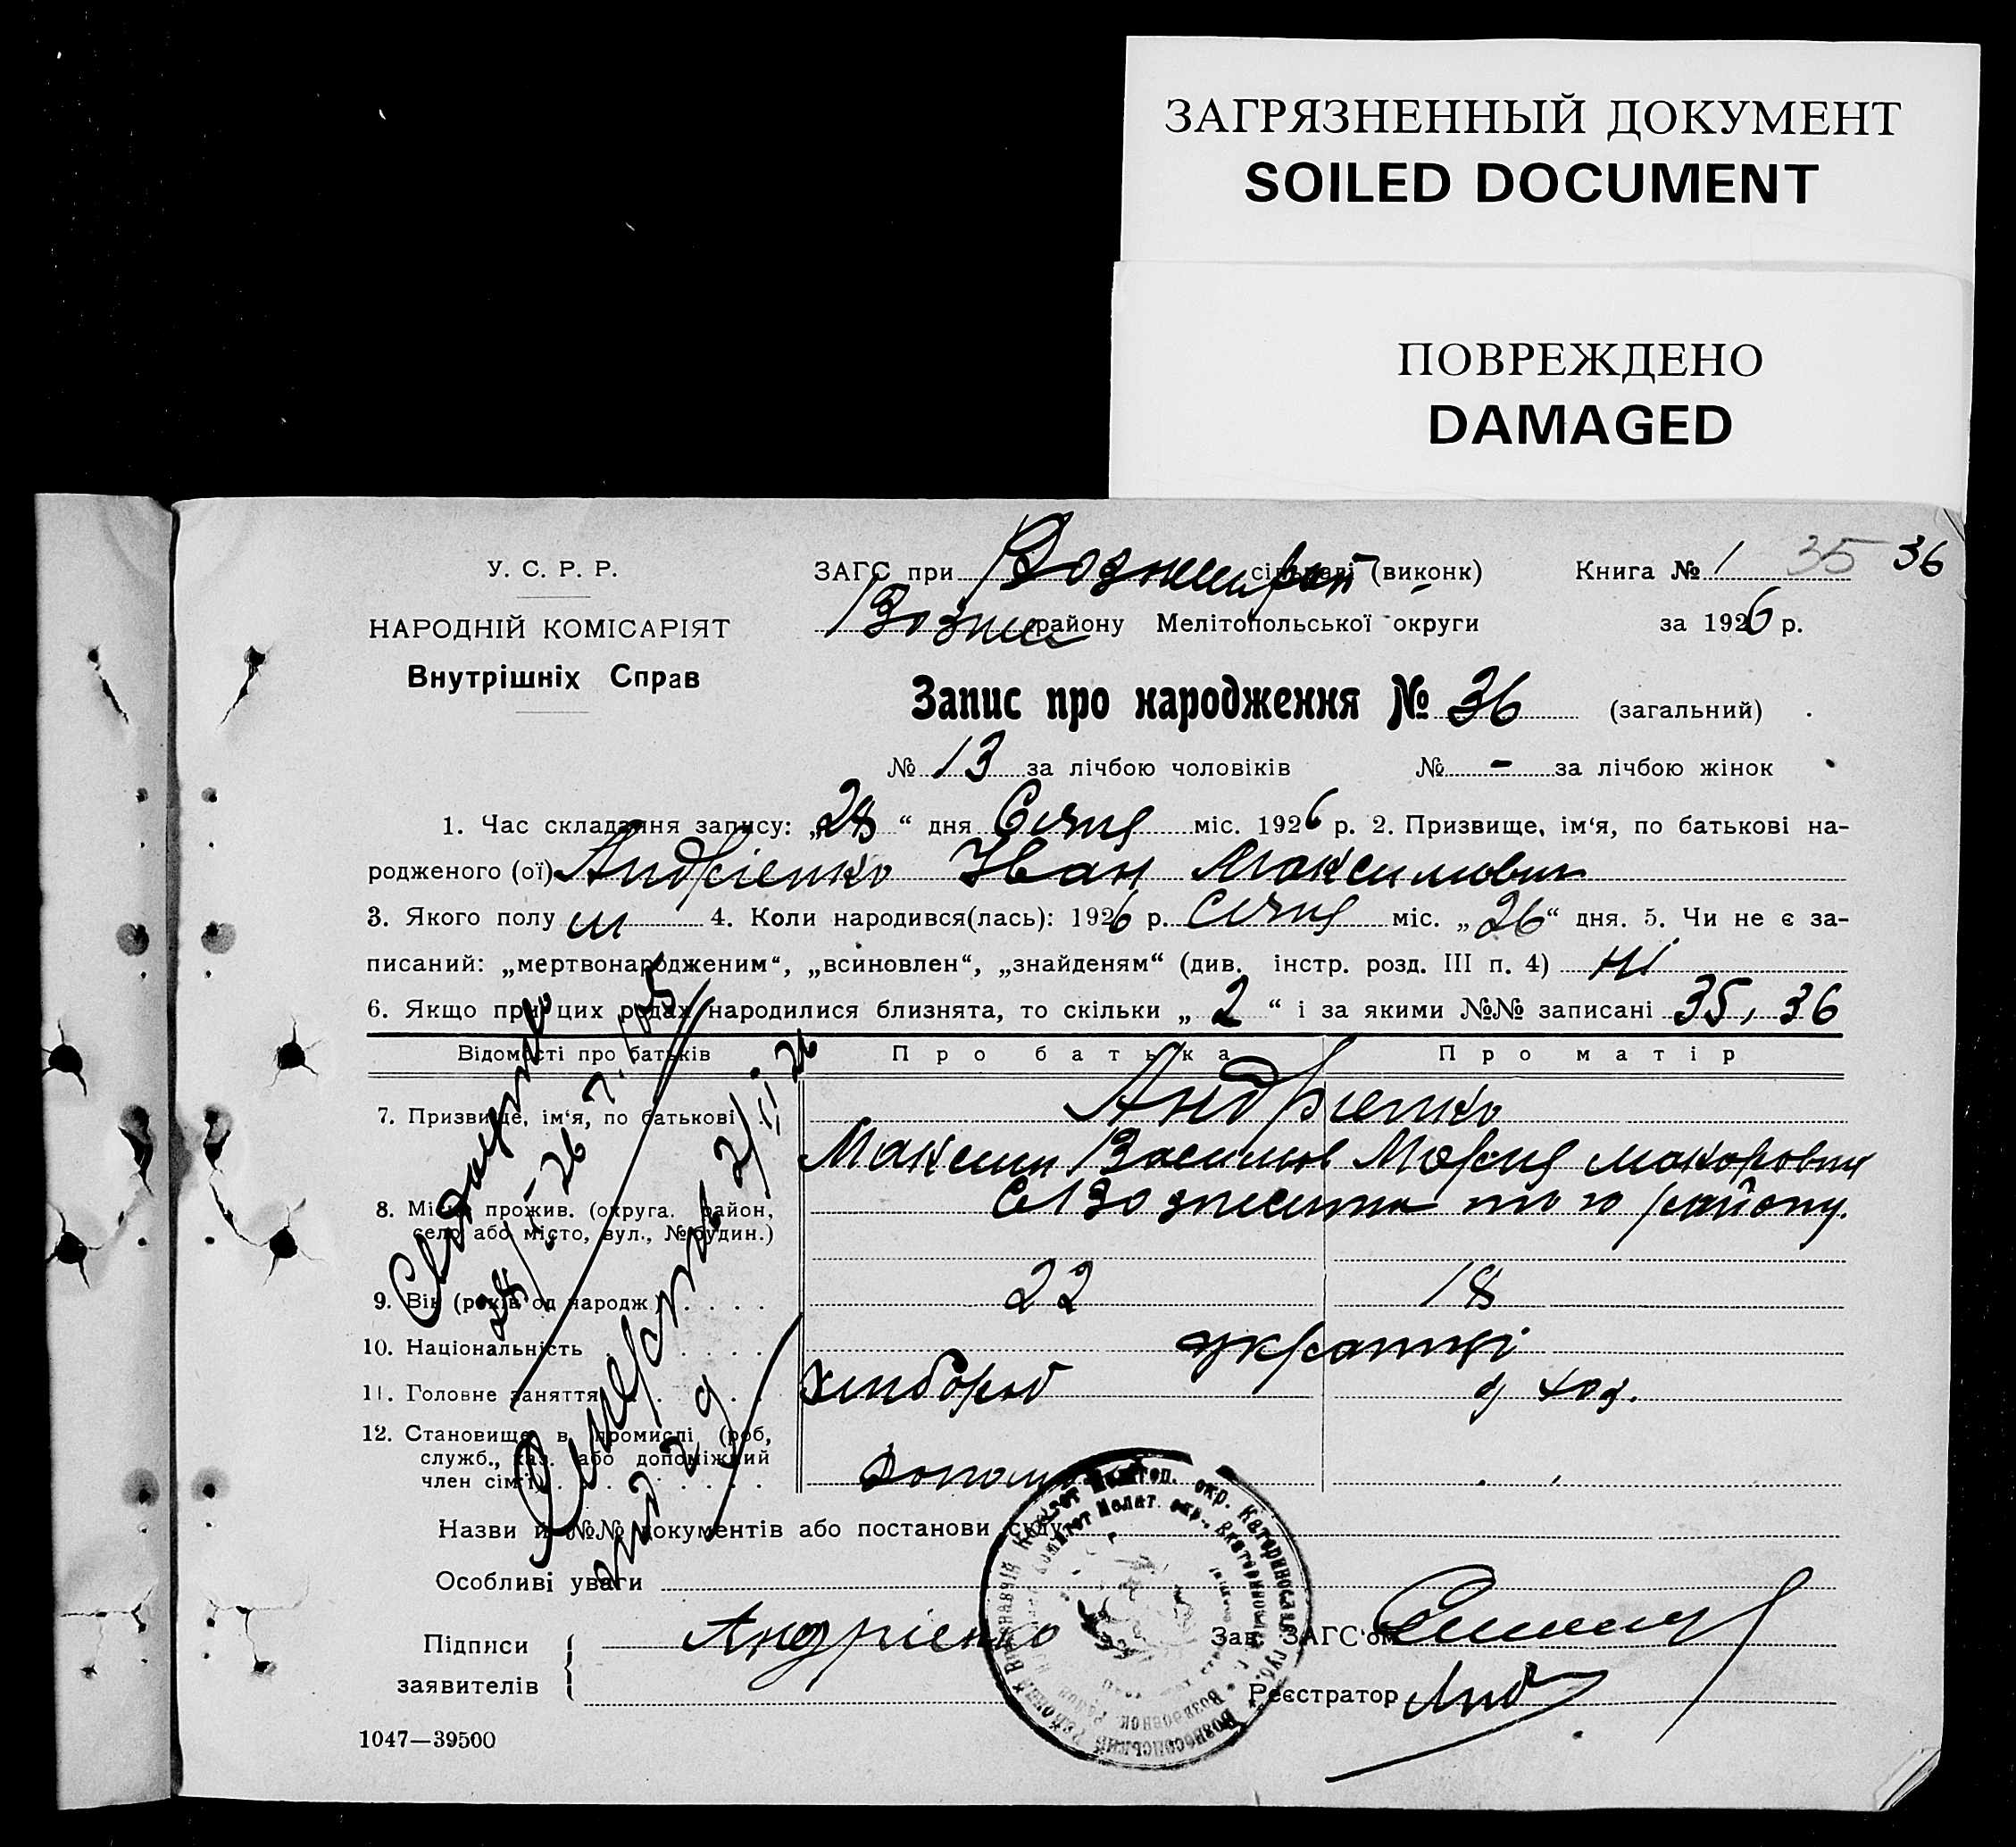 ЗАГРЯЗНЕННЫЙ ДОКУМЕНТ
SOILED DOCUMENT
ПОВРЕЖДЕНО
DAMAGED
У. С. Р. Р.
НАРОДНІЙ КОМІСАРІЯТ
Внутрішніх Справ
ЗАГС при (виконк)
району Мелітопольської округи
Книга № 1 35 36
за 1926 р.
Запис про народження № 36 (загальний)
№ 13 за лічбою чоловіків № - за лічбою жінок
1. Час складання запису: „28“ дня Січня міс. 1926 р. 2. Призвище, ім‘я, по батькові на-
родженого (ої) Андрієнко Іван Максимович
3. Якого полу 4. Коли народився(лась): 1926 р. Січня міс. „26“ дня. 5. Чи не є за-
писаний: „мертвонародженим“, „всиновлен“, „знайденям“ (див. інстр. розд. III п. 4) Ні
6. Якщо при цих родах народилися близнята, то скільки „2“ і за якими №№ записані 35, 36
Відомості про батьків Про батька Про матір
7. Призвище, ім‘я, по батькові Андрієнко
Максим Василів Мария Макаровна
8. Місце прожив. (округа. район, того району.
село або місто, вул., № будин.)
9. Вік (років од народж.) 22 18
10. Національність українці
11. Головне заняття хлібороб
12. Становище в промислі (роб,
служб., хаз. або допоміжний
член сім‘ї)
Назви й №№ документів або постанови суду
Особливі уваги
Підписи
заявителів
Андрієнко
Зав. ЗАГС‘ом
Реєстратор
1047—39500